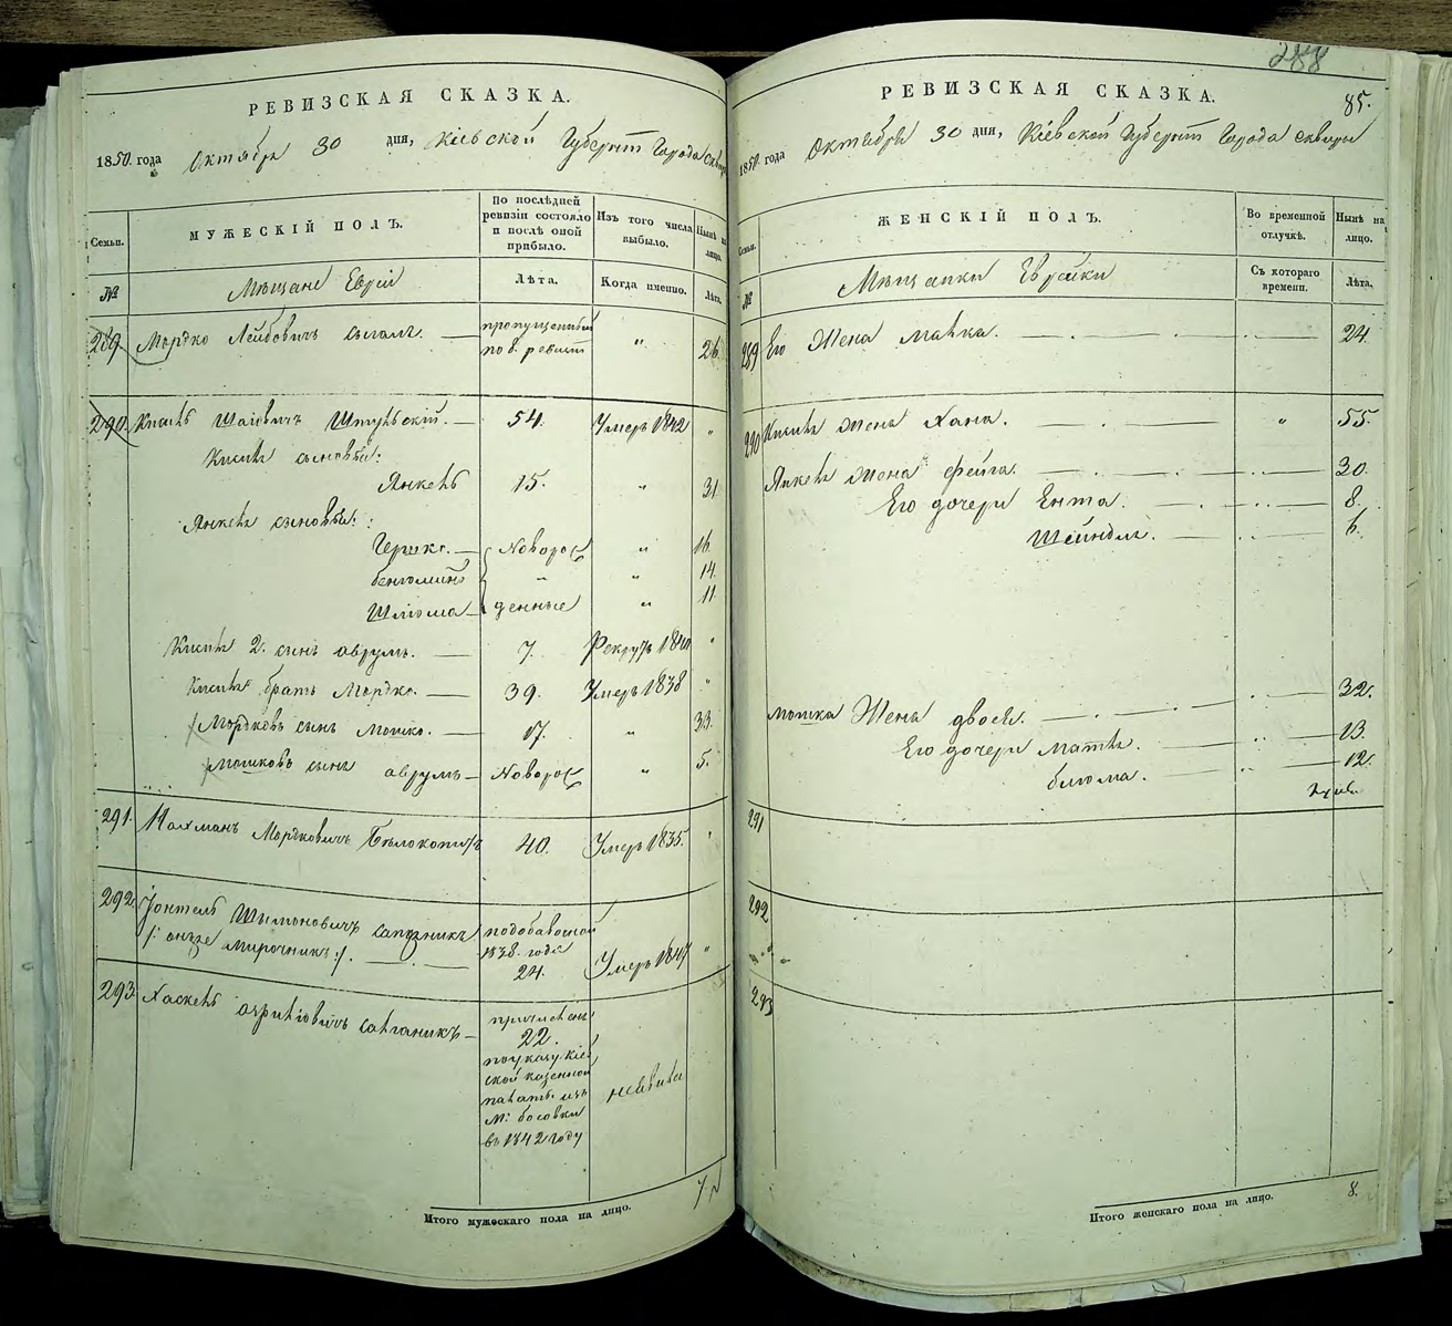 288
РЕВИЗСКАЯ СКАЗКА.
1850. года Октября 30 дня, Кіевской Губерніи Города Сквиры
Семьи.
МУЖЕСКІЙ ПОЛЪ.
По послѣдней ревизіи состояло и послѣ оной прибыло.
Изъ того числа выбыло.
Нынѣ на лицо.
№
Мѣщане Евреи
Лѣта.
Когда именно.
Лѣта.
289 Мордко Лейбовичъ — пропущенный по 8. ревизіи " 26.
290. Шаіовичъ — 54. Умеръ 1842 "
сыновья:
Янкель 15. " 31
Янкеля сыновья:
Гершко. — Новорож " 16.
Бенюминъ " " 14.
Шлiома — денные " 11
2. сынъ аврумъ. — 7. Рекрутъ 1840 "
братъ Мордко. — 39. Умеръ 1838 "
Мордковъ сынъ Мошко. — 17. " 33.
Мошковъ сынъ аврумъ — Новорож " 5.
291. Нахманъ Мордковичъ Бѣлокопытъ 40. Умеръ 1835. "
292. Шымоновичъ
/: онъже Мирочникъ :/. — 1838. года 24. Умеръ 1847 "
293. Хаскель —
причисленъ
22.
по указу Кіев
ской казенной
палаты изъ
м: босовки
въ 1842 году
неявился
Итого мужескаго пола на лицо. 7.
РЕВИЗСКАЯ СКАЗКА. 85.
1850. года Октября 30 дня, Кіевской Губерніи Города Сквиры
Семьи.
ЖЕНСКІЙ ПОЛЪ.
Во временной отлучкѣ.
Нынѣ на лицо.
№
Мѣщанки Еврейки
Съ котораго времени.
Лѣта.
289 Его Жена Малка. — 24.
290 жена Хана. " 55.
Янкеля жена фейга. — 30.
Его дочери Ента. — 8.
Шейндля. — 6.
Мошка Жена двося. — 32.
Его дочери — 13.
блюма. — 12.
291
292
293
Итого женскаго пола на лицо. 8.